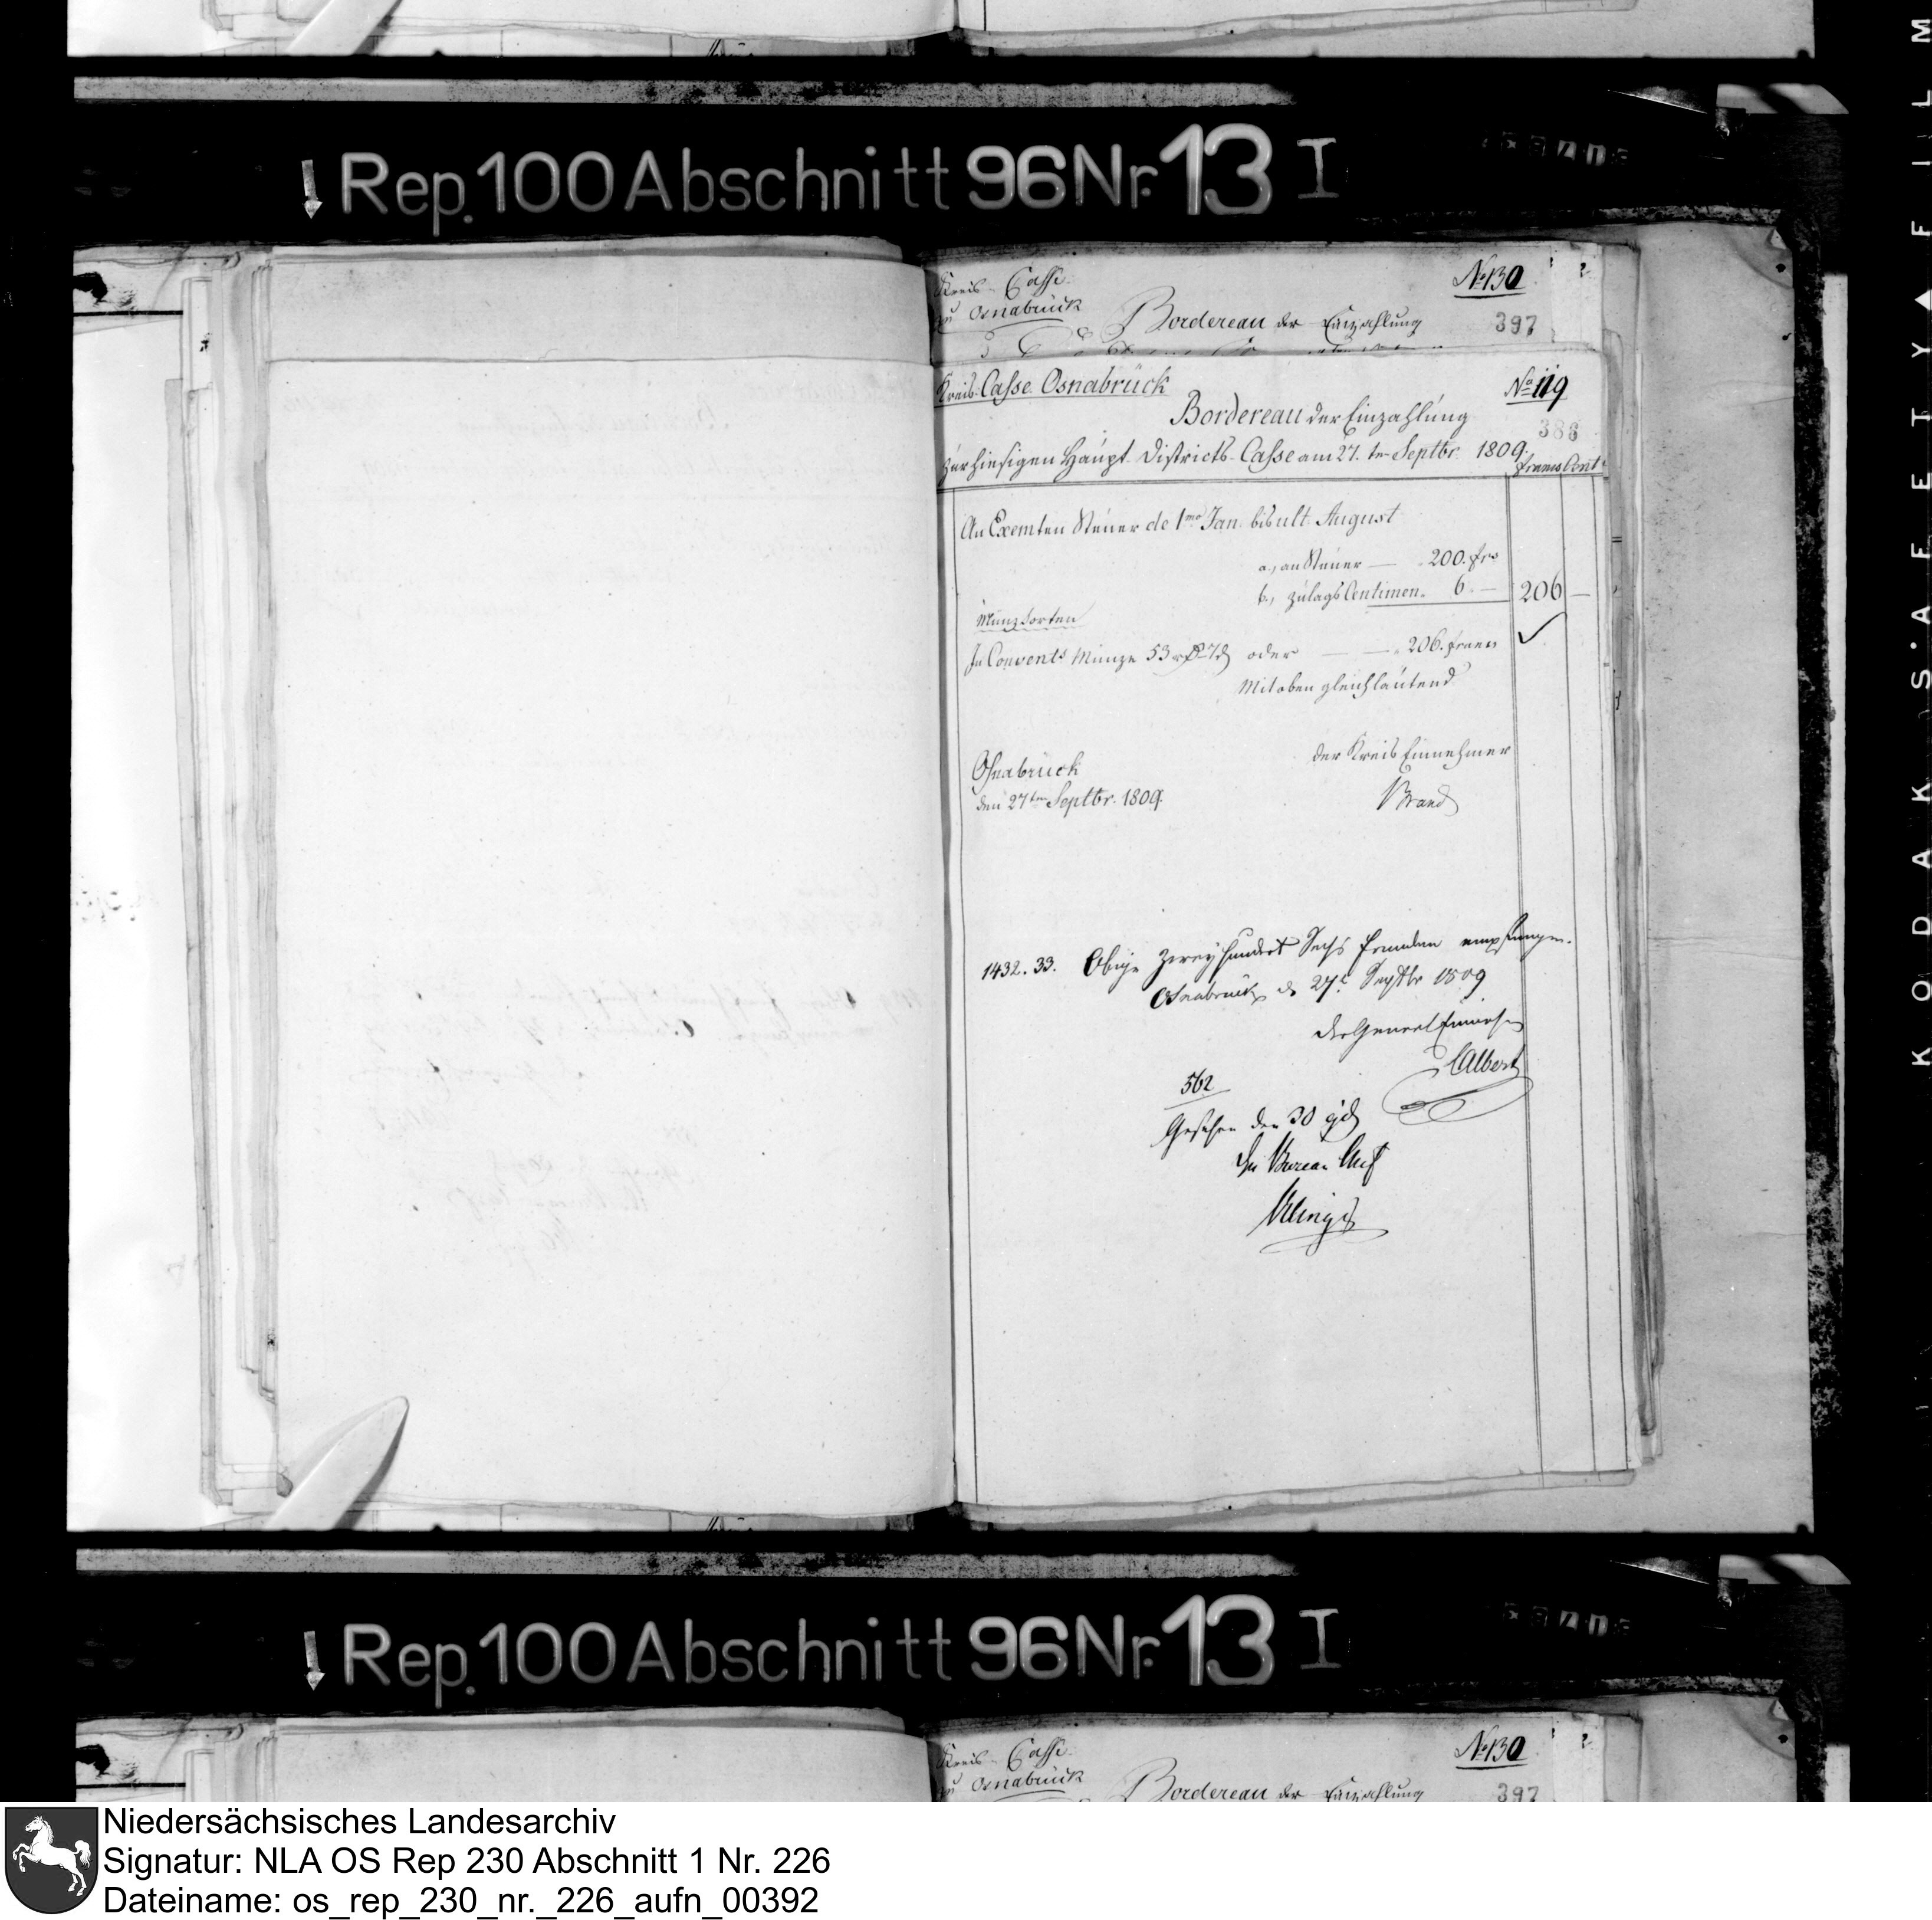 Rep. 100 Abschnitt 96 Nr. 13 I
Kreis-Casse
zu Osnabrück
No 130
Bordereau der Einzahlung
397
Kreis-Casse Osnabrück
No 119
Bordereau der Einzahlung
388
zur hiesigen Haupt-Districts-Casse am 27.ten Septbr. 1809.
Francs Cent.
An Exemten Steuer de 1mo Jan. bis ult. August
a., an Steuer — 200. frs
b., zulags Centimen. 6. —
206 —
Münzsorten
In Convents Münze 53 rt 7 d oder — — 206. francs
Mit oben gleichlautend
Osnabrück
den 27ten Septbr. 1809.
der Kreis Einnehmer
Brand
1432. 33. Obige zweyhundert Sechs Franken empfangen.
Osnabrück d 27t Septbr 1809
der General Einnehmer
Albert
562
Gesehen den 30
der Bureau Chef
Rep. 100 Abschnitt 96 Nr. 13 I
Kreis-Casse
zu Osnabrück
No 130
Bordereau der Einzahlung
397
KODAK 'SAFETY ▲ FILM
Niedersächsisches Landesarchiv
Signatur: NLA OS Rep 230 Abschnitt 1 Nr. 226
Dateiname: os_rep_230_nr._226_aufn_00392